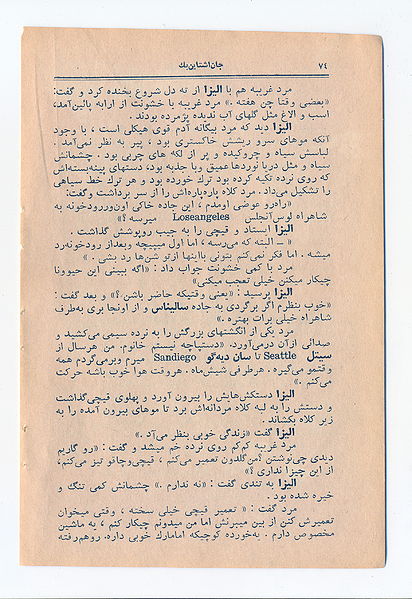 ۷۴
جان‌اشتاین‌بك
مرد غریبه هم با الیزا از ته دل شروع بخنده کرد و گفت:
«بعضی وقتا چن هفته .» مرد غریبه با خشونت از ارابه پائین‌آمد،
اسب و الاغ مثل گلهای آب ندیده پژمرده بودند .
الیزا دید که مرد بیگانه آدم قوی هیکلی است ، با وجود
آنکه موهای سرو ریشش خاکستری بود ، پیر به نظر نمی‌آمد .
لباسش سیاه و چروکیده و پر از لکه های چربی بود . چشمانش
سیاه و مثل دریا نوردها عمیق وبا جذبه بود، دستهای پینه‌بسته‌اش
که روی نرده تکیه کرده بود ترك خورده بود و هر ترك خط سیاهی
را تشکیل می‌داد. مرد کلاه پاره‌پاره‌اش را از سر برداشت وگفت:
«راه‌رو عوضی اومدم ، این جاده خاکی اون‌وررودخونه به
شاهراه لوس‌آنجلس Loseangeles میرسه ؟»
الیزا ایستاد و قیچی را به جیب روپوشش گذاشت .
« ــ البته که می‌رسه ، اما اول میپیچه وبعداز رودخونه‌رد
میشه . اما فکر نمی‌کنم بتونی بااینها ازتو شن‌ها رد بشی . »
مرد با کمی خشونت جواب داد : «اگه ببینی این حیوونا
چیکار میکنن خیلی تعجب میکنی»
الیزا پرسید : «یعنی وقتیکه حاضر باشن؟» و بعد گفت :
«خوب بنظرم اگر برگردی به جاده سالیناس و از اونجا بری به‌طرف
شاهراه خیلی برات بهتره .»
مرد یکی از انگشتهای بزرگش را به نرده سیمی می‌کشید و
صدائی ازآن درمی‌آورد. «دستپاچه نیستم خانوم. من هرسال از
سیتل Seattle تا سان دیه‌گو Sandiego میرم وبرمی‌گردم همه
وقتمو می‌گیره . هرطرفی شیش‌ماه. هروقت هوا خوب باشه حرکت
می‌کنم .»
الیزا دستکش‌هایش را بیرون آورد و پهلوی قیچی‌گذاشت
و دستش را به لبه کلاه مردانه‌اش برد تا موهای بیرون آمده را به
زیر کلاه بکشاند .
الیزا گفت «زندگی خوبی بنظر می‌آد .»
مرد غریبه کم‌کم روی نرده خم میشد و گفت: «رو گاریم
دیدی چی‌نوشتن ؟من‌گلدون تعمیر می‌کنم ، قیچی‌وچاقو تیز می‌کنم،
از این چیزا نداری ؟»
الیزا به تندی گفت : «نه ندارم .» چشمانش کمی تنگ و
خیره شده بود .
مرد گفت : « تعمیر قیچی خیلی سخته ، وقتی میخوان
تعمیرش کنن از بین میبرنش اما من میدونم چیکار کنم ، یه ماشین
مخصوص دارم . یه‌خورده کوچیکه امامارك خوبی داره. روهم‌رفته